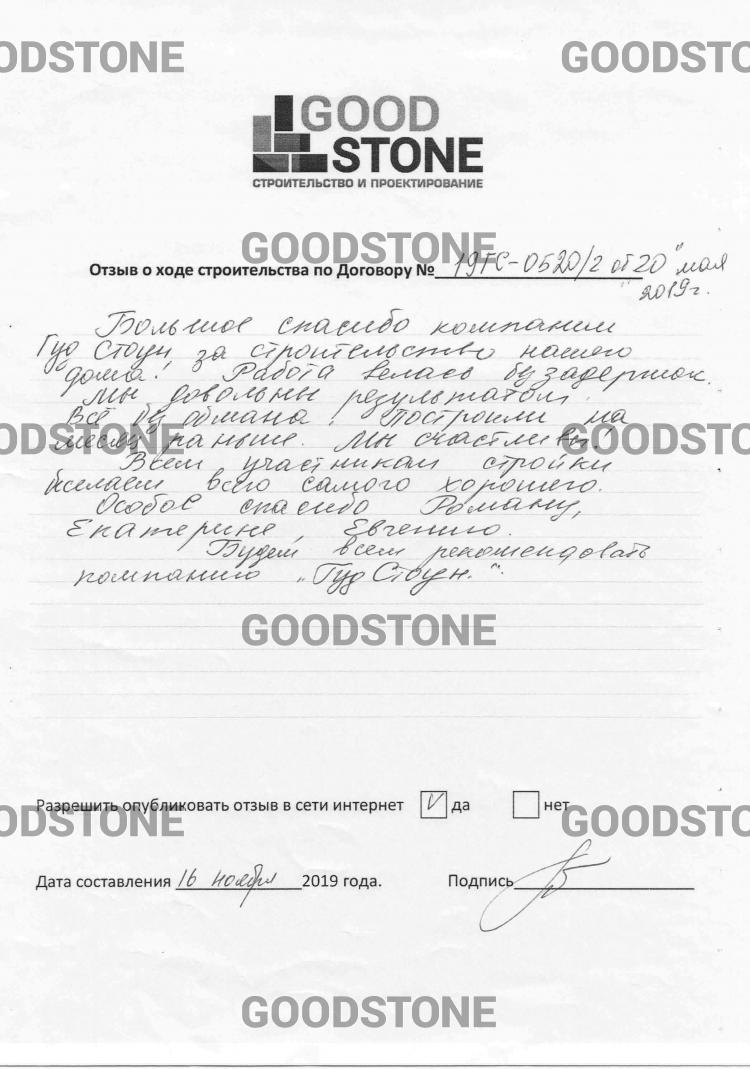 GOODSTONE GOODSTONE
GOOD
STONE
СТРОИТЕЛЬСТВО И ПРОЕКТИРОВАНИЕ
GOODSTONE
Отзыв о ходе строительства по Договору № 19ГС-0520/2 от 20 "мая"
2019г.
Большое спасибо компании
Гуд Стоун за строительство нашего
дома! Работа велась без задержек.
Мы довольны результатом.
Всё без обмана! Построили на
GOODSTONE GOODSTONE
месяц раньше. Мы счастливы!
Всем участникам стройки
желаем всего самого хорошего.
Особое спасибо Роману,
Екатерине, Евгению.
Будем всем рекомендовать
компанию "Гуд Стоун."
GOODSTONE
Разрешить опубликовать отзыв в сети интернет V да нет
GOODSTONE GOODSTONE
Дата составления 16 ноября 2019 года. Подпись
GOODSTONE